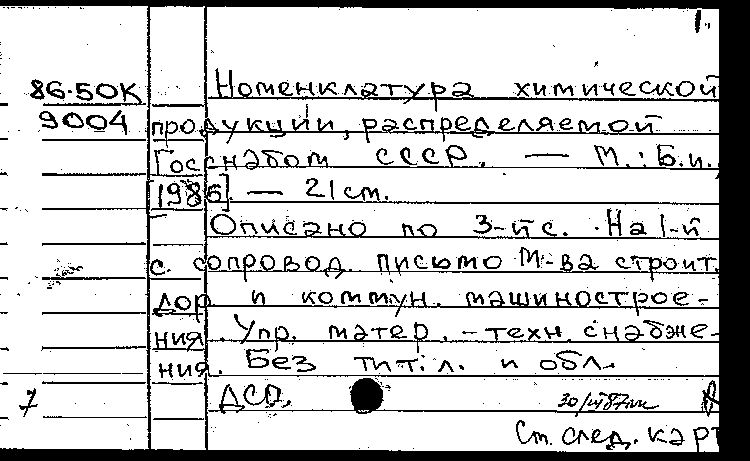 1.
86-50К Номенклатура химической
9004 продукции, распределяемой
Госснабом СССР. — М.: Б.и.,
[1986]. — 21 см.
Описано по 3-й с. На 1-й
с. сопровод. письмо М-ва строит.
дор. и коммун. машинострое-
ния. Упр. матер.-техн. снабже-
ния. Без тит. л. и обл.
7 ДСП.
См. след. карт